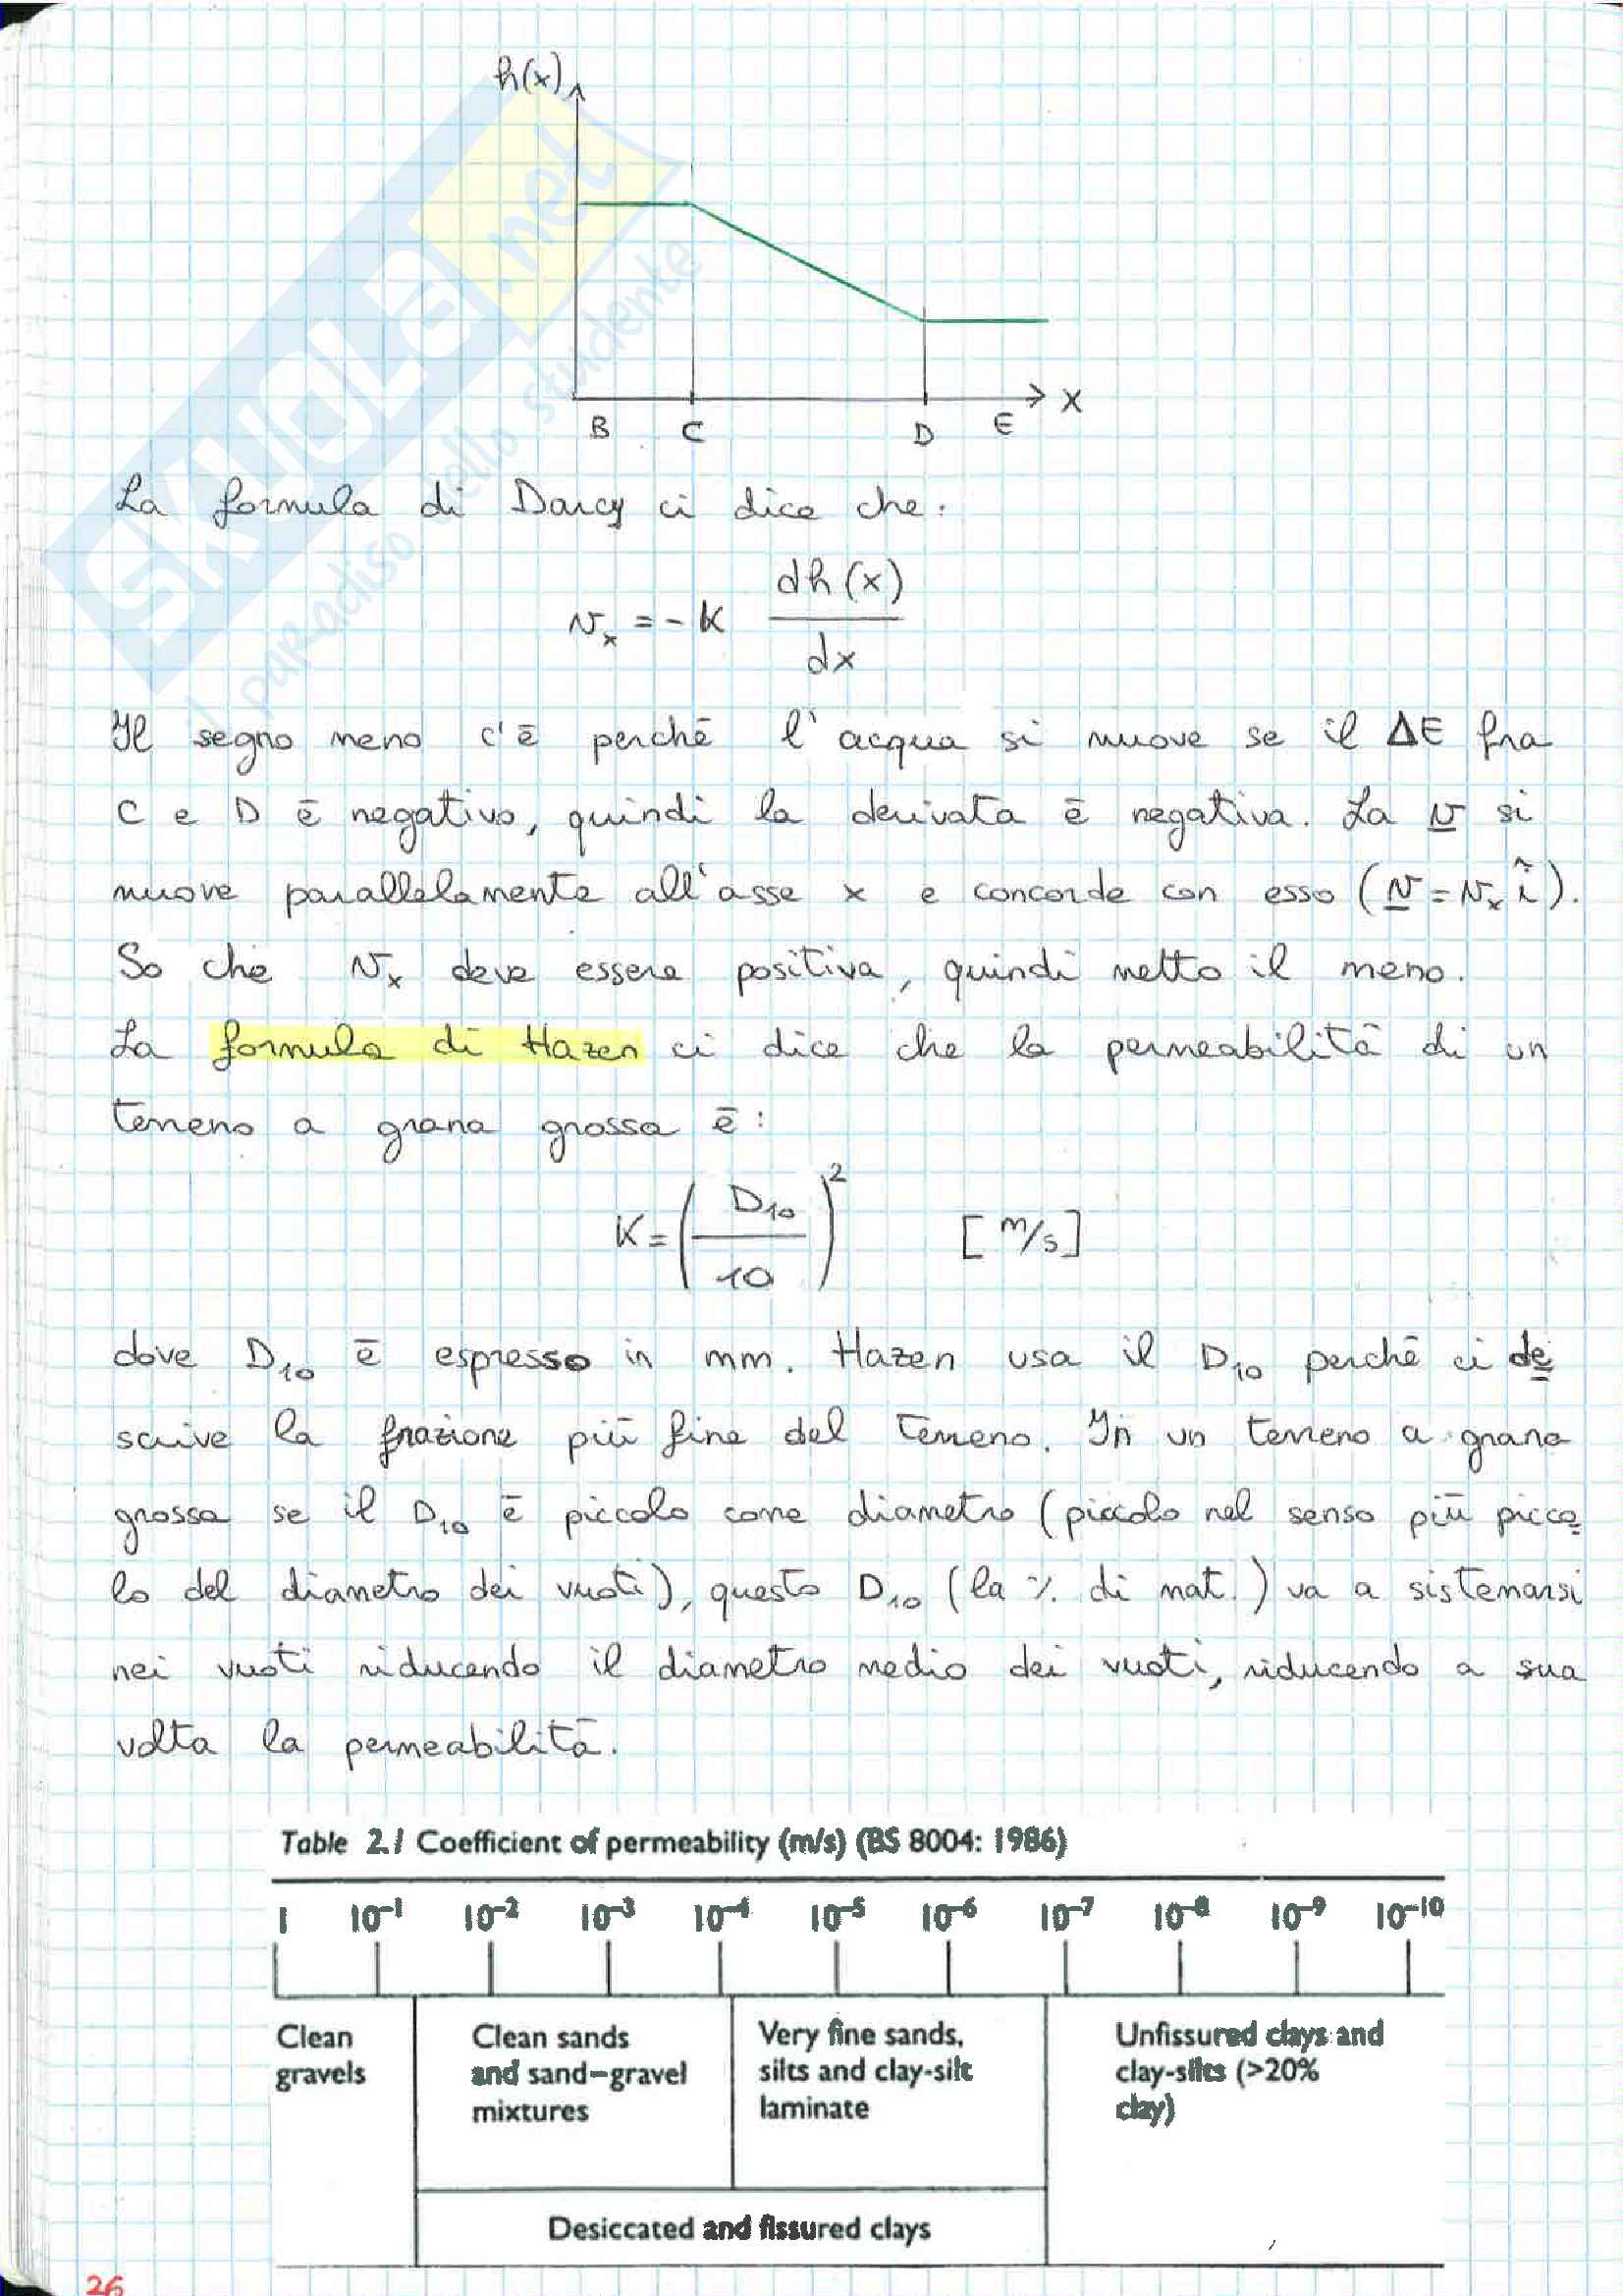 h(x)
B C D E x
La formula di Darcy ci dice che:
v_x = - K dh(x)/dx
Il segno meno c'è perché l'acqua si muove se il ΔE fra
C e D è negativo, quindi la derivata è negativa. La v si
muove parallelamente all'asse x e concorde con esso (v = v_x î).
So che v_x deve essere positiva, quindi metto il meno.
La formula di Hazen ci dice che la permeabilità di un
terreno a grana grossa è:
K = (D₁₀/10)² [m/s]
dove D₁₀ è espresso in mm. Hazen usa il D₁₀ perché ci de
scrive la frazione più fine del terreno. In un terreno a grana
grossa se il D₁₀ è piccolo come diametro (piccolo nel senso più picco
lo del diametro dei vuoti), questo D₁₀ (la % di mat.) va a sistemarsi
nei vuoti riducendo il diametro medio dei vuoti, riducendo a sua
volta la permeabilità.
Table 2.1 Coefficient of permeability (m/s) (BS 8004: 1986)
1 10⁻¹ 10⁻² 10⁻³ 10⁻⁴ 10⁻⁵ 10⁻⁶ 10⁻⁷ 10⁻⁸ 10⁻⁹ 10⁻¹⁰
Clean
gravels
Clean sands
and sand–gravel
mixtures
Very fine sands,
silts and clay-silt
laminate
Unfissured clays and
clay-silts (>20%
clay)
Desiccated and fissured clays
26
SKUOLA.net
il paradiso dello studente